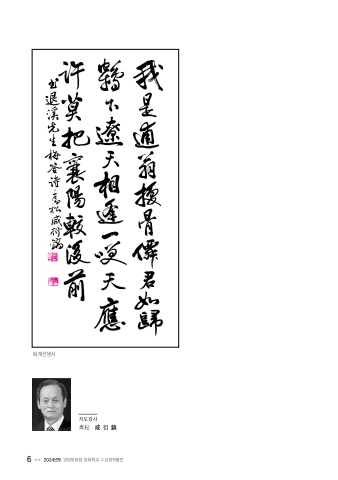 我是逋翁換骨僊君如歸
鶴下遼天相逢一咲天應
許莫把襄陽較後前
書退溪先生梅答詩 靑松咸衍鎬
퇴계선생시
지도강사
靑松 咸 衍 鎬
6 2024년도 양양문화원 문화학교 수강생작품전